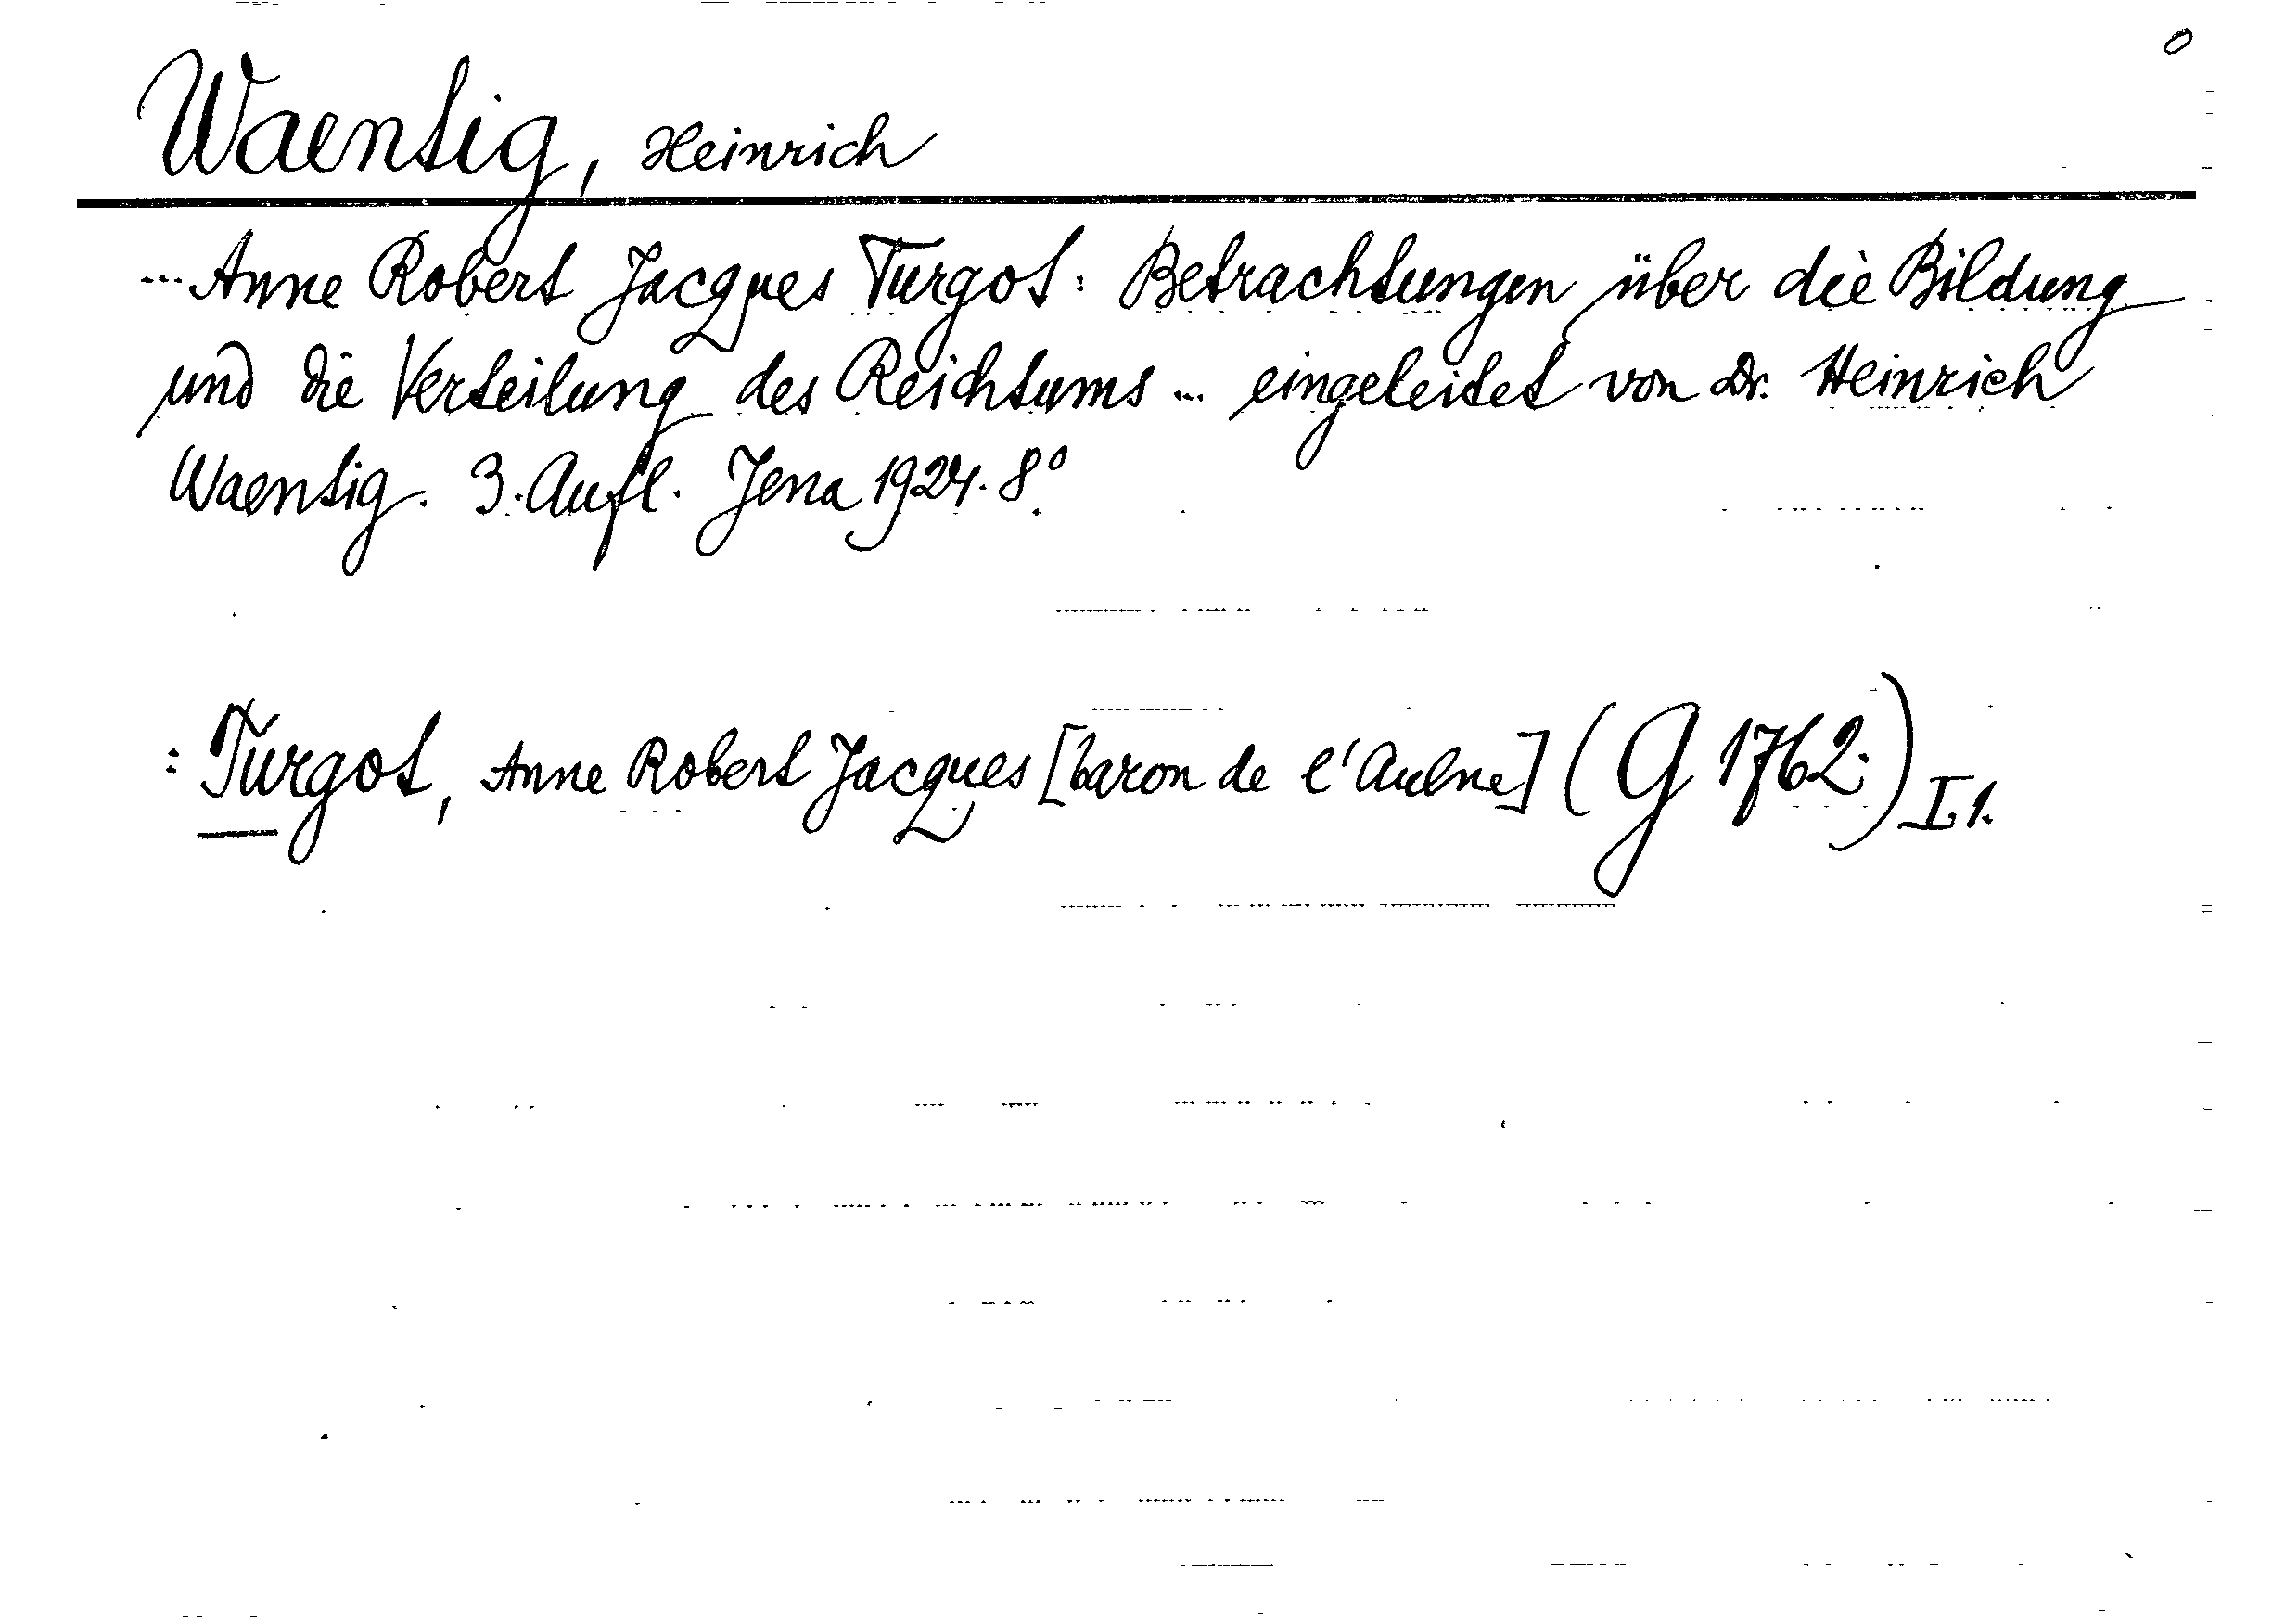 0
Waentig, Heinrich
... Anne Robert Jacques Turgot: Betrachtungen über die Bildung
und die Verteilung des Reichtums ... eingeleitet von Dr. Heinrich
Waentig. 3. Aufl. Jena 1924. 8°
: Turgot, Anne Robert Jacques [baron de l'Aulne] (G 1762.) I,1.